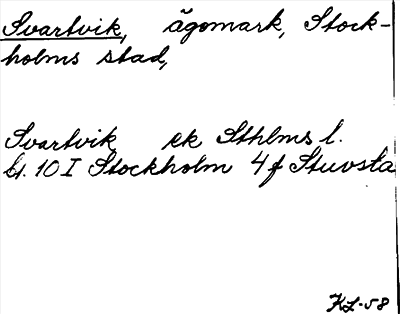 Svartvik, ägomark, Stock-
holms stad,
Svartvik ek Sthlms l.
bl. 10 I Stockholm 4 f Stuvsta
KL-58